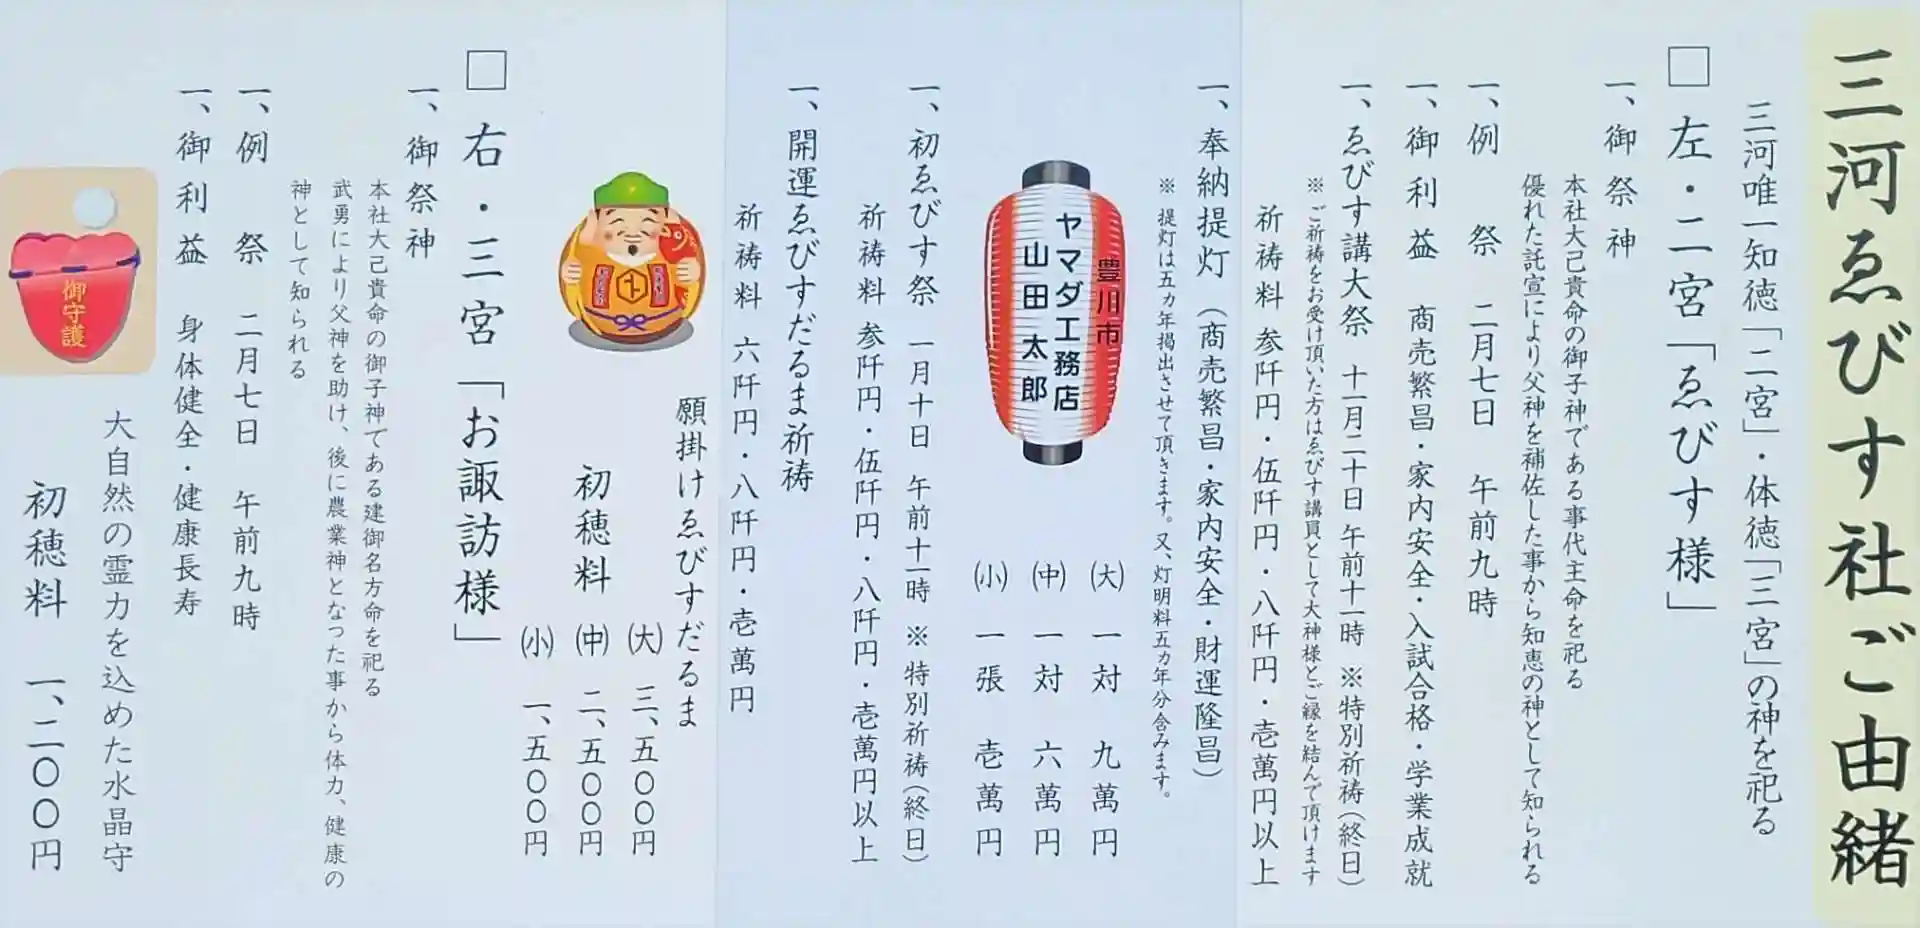 三河ゑびす社ご由緒
三河唯一知徳「二宮」・体徳「三宮」の神を祀る
□ 左・二宮「ゑびす様」
一、御祭神
本社大己貴命の御子神である事代主命を祀る
優れた託宣により父神を補佐した事から知恵の神として知られる
一、例祭 二月七日 午前九時
一、御利益 商売繁昌・家内安全・入試合格・学業成就
一、ゑびす講大祭 十一月二十日 午前十一時 ※特別祈祷(終日)
※ご祈祷をお受け頂いた方はゑびす講員として大神様とご縁を結んで頂けます
祈祷料 参阡円・伍阡円・八阡円・壱萬円以上
一、奉納提灯(商売繁昌・家内安全・財運隆昌)
※提灯は五ヵ年掲出させて頂きます。又、灯明料五ヵ年分含みます。
豊川市
ヤマダ工務店
山田太郎
(大) 一対 九萬円
(中) 一対 六萬円
(小) 一張 壱萬円
一、初ゑびす祭 一月十日 午前十一時 ※特別祈祷(終日)
祈祷料 参阡円・伍阡円・八阡円・壱萬円以上
一、開運ゑびすだるま祈祷
祈祷料 六阡円・八阡円・壱萬円
願掛けゑびすだるま
初穂料 (大) 三、五〇〇円
(中) 二、五〇〇円
(小) 一、五〇〇円
□ 右・三宮「お諏訪様」
一、御祭神
本社大己貴命の御子神である建御名方命を祀る
武勇により父神を助け、後に農業神となった事から体力、健康の
神として知られる
一、例祭 二月七日 午前九時
一、御利益 身体健全・健康長寿
御守護
大自然の霊力を込めた水晶守
初穂料 一、二〇〇円